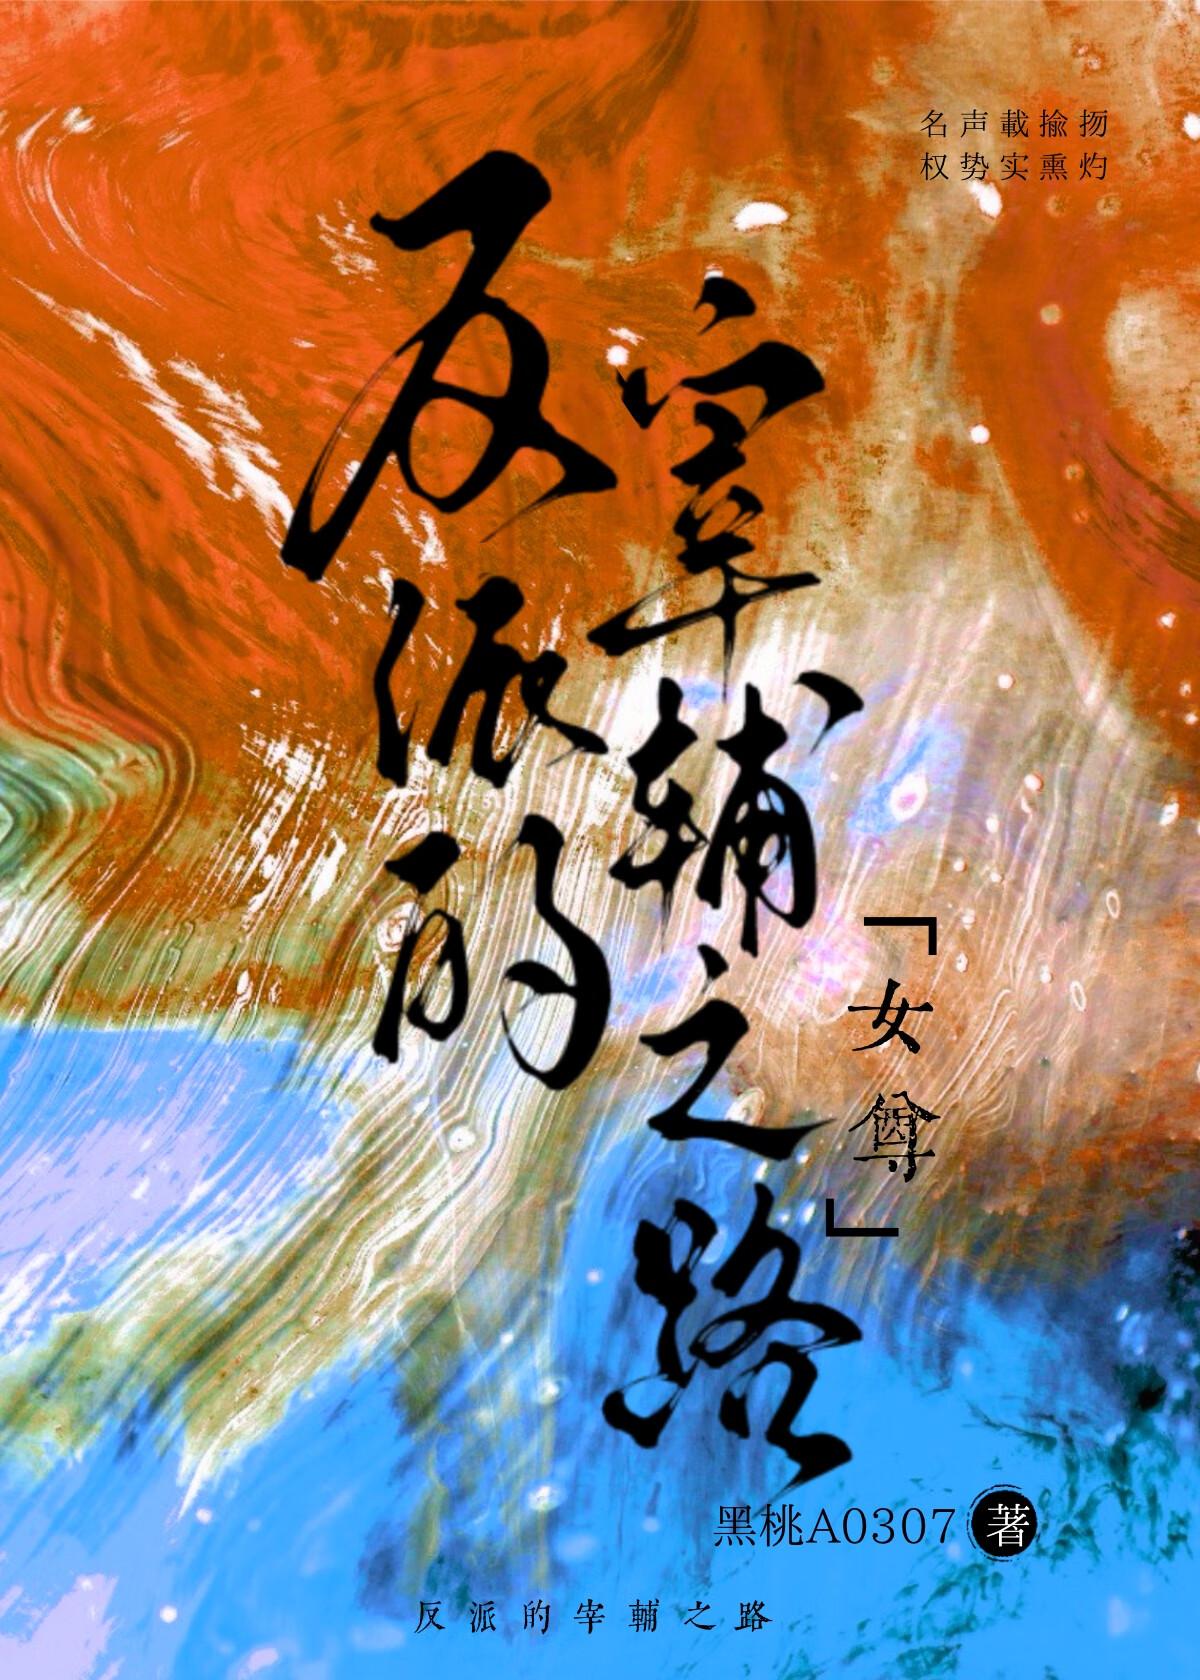 名声載揄扬
权势实熏灼
反派的
宰輔之路
「女尊」
黑桃A0307 著
反派的宰輔之路